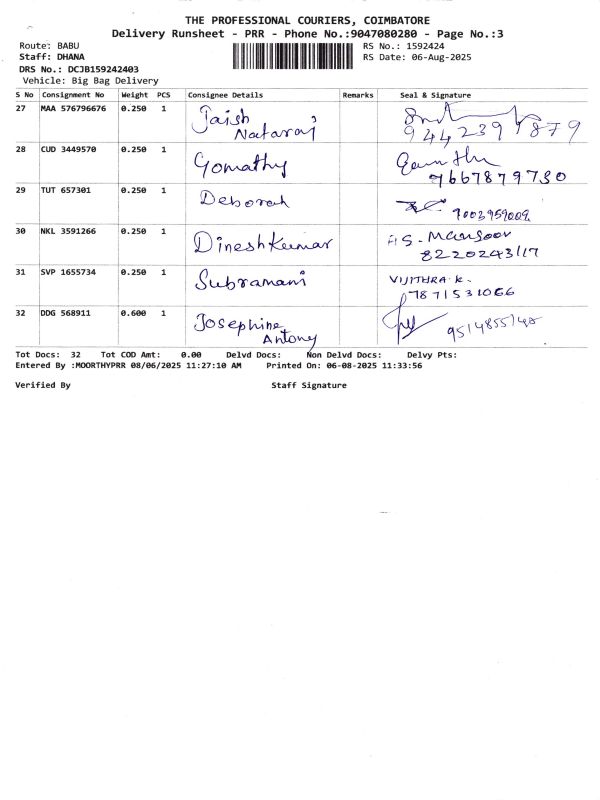 THE PROFESSIONAL COURIERS, COIMBATORE
Delivery Runsheet - PRR - Phone No.:9047080280 - Page No.:3
Route: BABU RS No.: 1592424
Staff: DHANA RS Date: 06-Aug-2025
DRS No.: DCJB159242403
Vehicle: Big Bag Delivery
S No Consignment No Weight PCS Consignee Details Remarks Seal & Signature
27 MAA 576796676 0.250 1 Jaish
Nataraj 9442391879
28 CUD 3449570 0.250 1 Gomathy
9667879730
29 TUT 657301 0.250 1 Deborah
9003959009
30 NKL 3591266 0.250 1 Dineshkumar AS - Mansoor
8220243117
31 SVP 1655734 0.250 1 Subramani VIJITHRA K.
7871531066
32 DDG 568911 0.600 1 Josephine
Antony 9514855140
Tot Docs: 32 Tot COD Amt: 0.00 Delvd Docs: Non Delvd Docs: Delvy Pts:
Entered By :MOORTHYPRR 08/06/2025 11:27:10 AM Printed On: 06-08-2025 11:33:56
Verified By Staff Signature